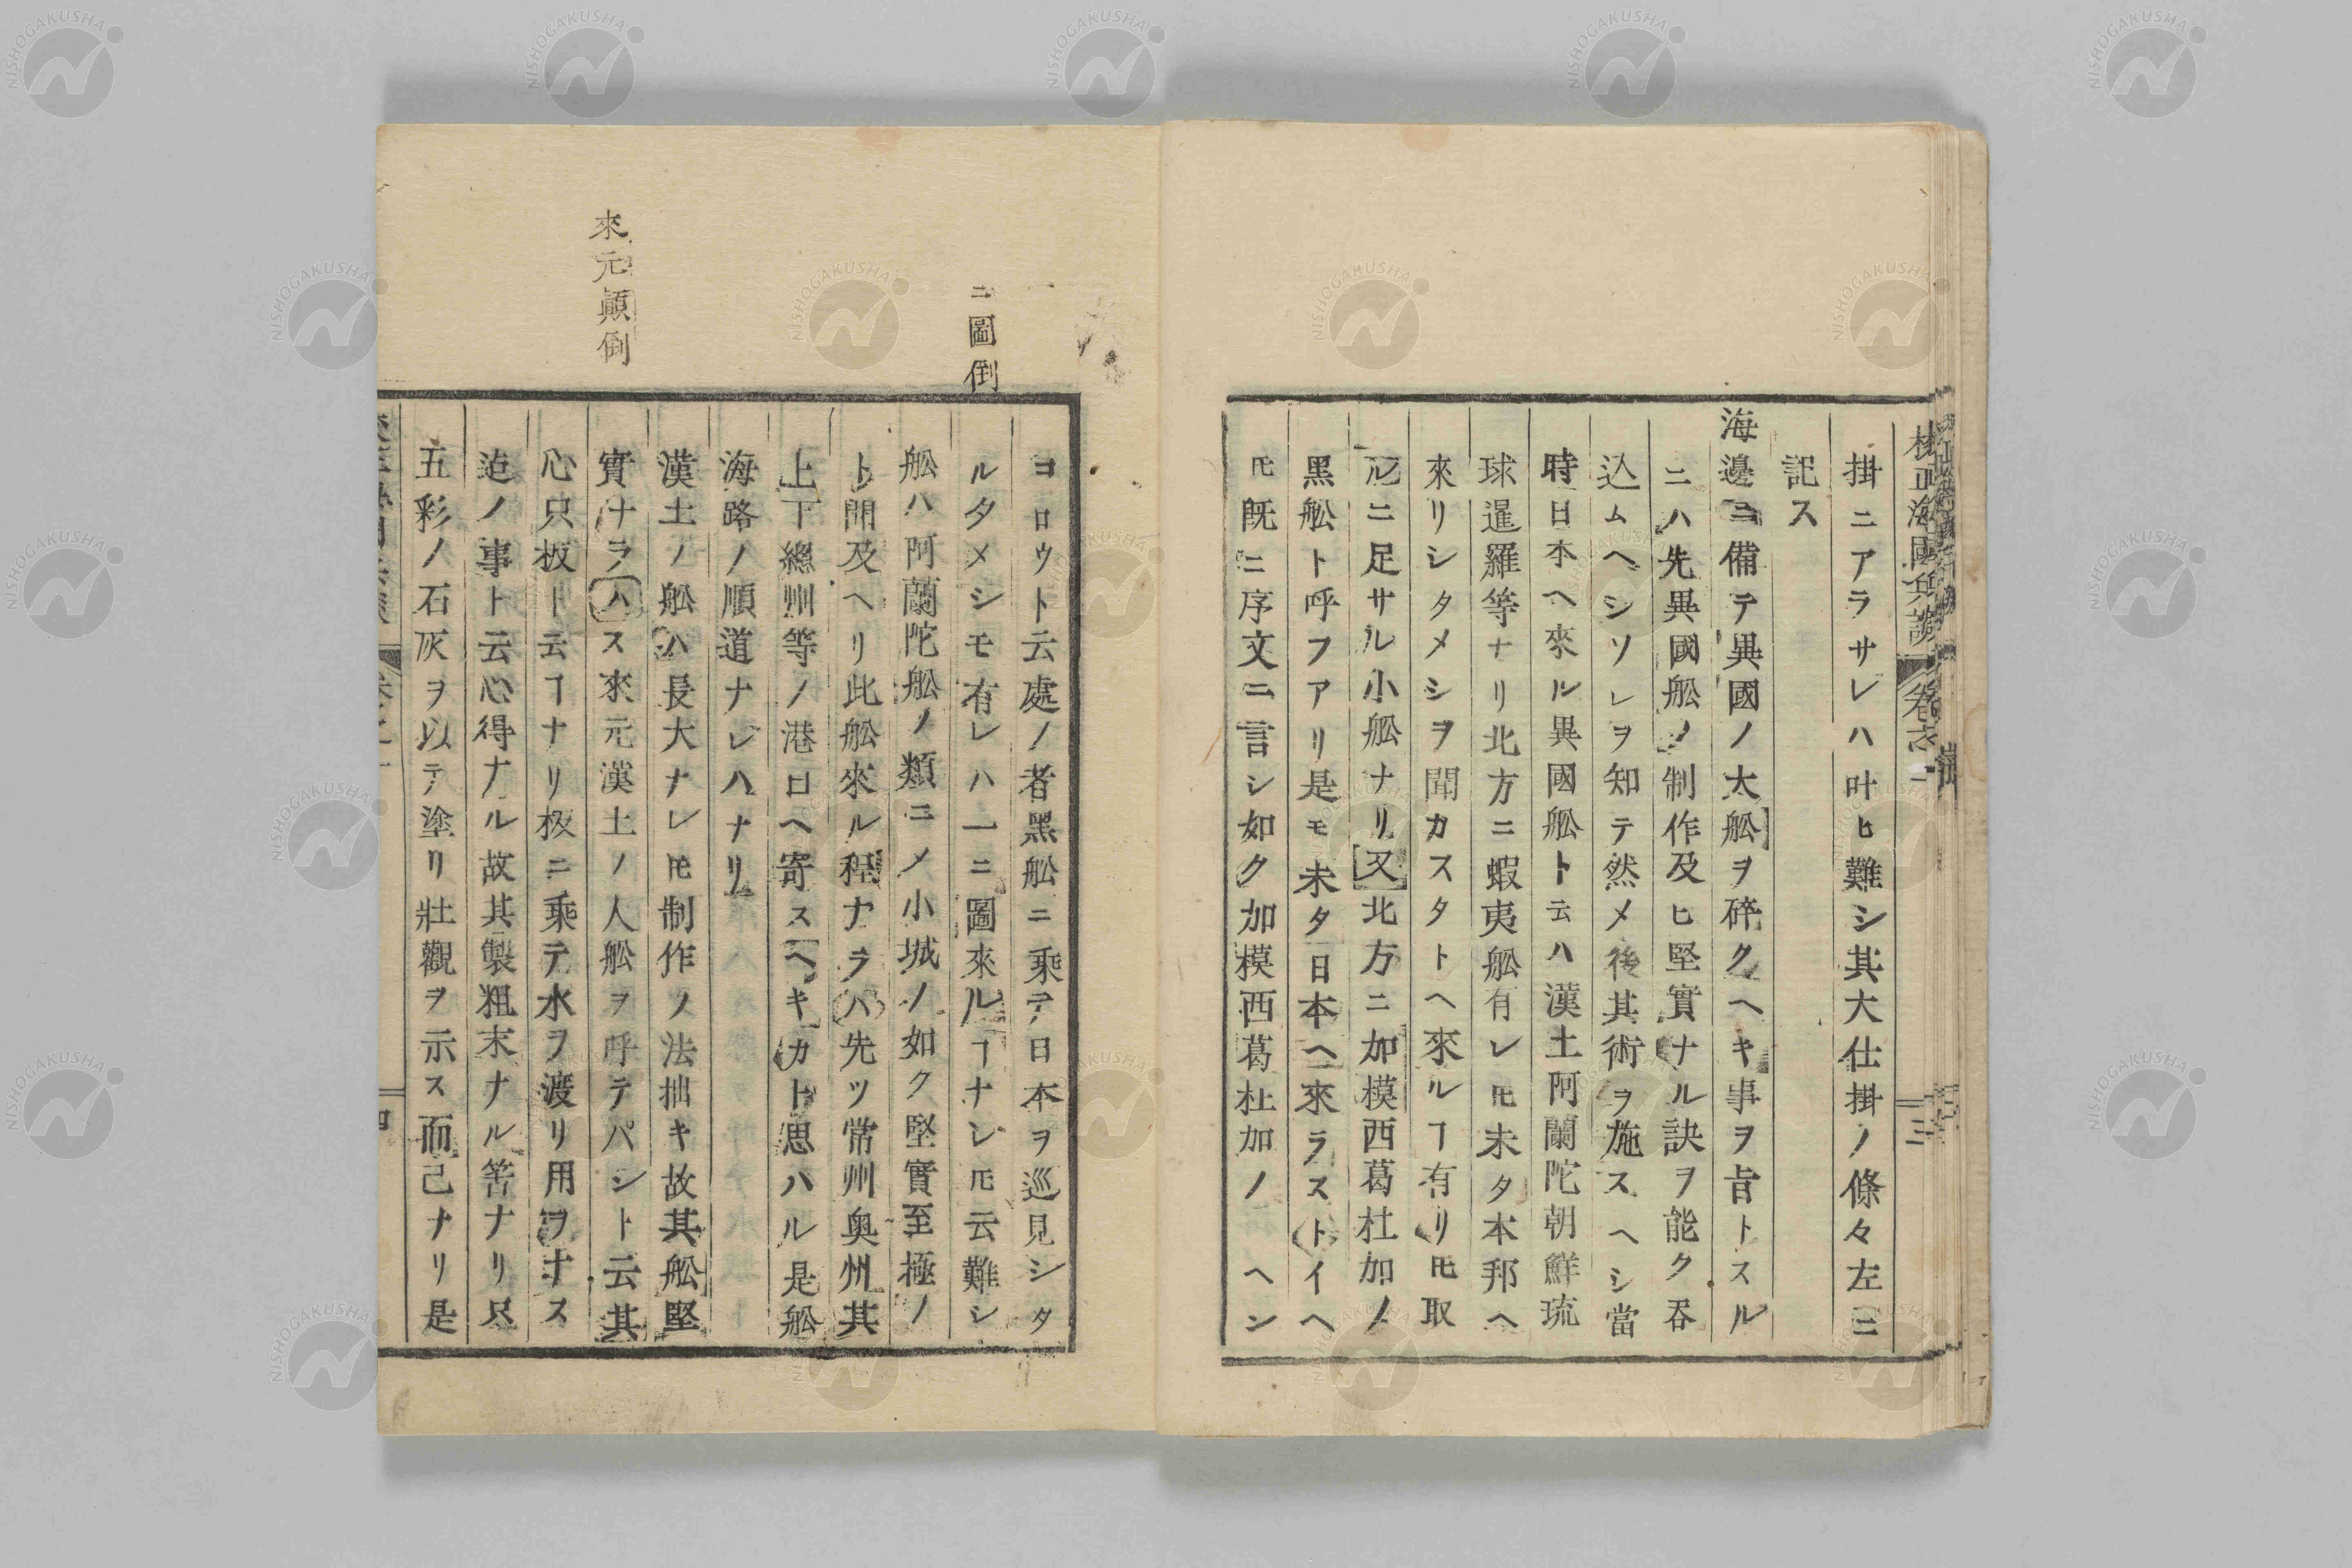 校正海國兵談 卷之一 三
掛ニアラサレハ叶ヒ難シ其大仕掛ノ條々左ニ
記ス
海邊ニ備テ異國ノ大舩ヲ碎クヘキ事ヲ旨トスル
ニハ先異國舩ノ制作及ヒ堅實ナル訣ヲ能ク呑
込ムヘシソレヲ知テ然メ後其術ヲ施スヘシ當
時日本ヘ來ル異國舩ト云ハ漢土阿蘭陀朝鮮琉
球暹羅等ナリ北方ニ蝦夷舩有レ𪜈未タ本邦ヘ
來リシタメシヲ聞カスタトヘ來ルヿ有リ𪜈取
ルニ足サル小舩ナリ又北方ニ加模西葛杜加ノ
黒舩ト呼フアリ是モ未タ日本ヘ來ラストイヘ
𪜈既ニ序文ニ言シ如ク加模西葛杜加ノヘン
コロウト云處ノ者黑舩ニ乘テ日本ヲ巡見シタ
ルタメシモ有レハ一ニ圖來ルヿナシ𪜈云難シ
舩ハ阿蘭陀舩ノ類ニメ小城ノ如ク堅實至極ノ
ト聞及ヘリ此舩來ル程ナラハ先ツ常州奥州其
上下總州等ノ港口ヘ寄スヘキカト思ハル是舩
海路ノ順道ナレハナリ
漢土ノ舩ハ長大ナレ𪜈制作ノ法拙キ故其舩堅
實ナラハス來元漢土ノ人舩ヲ呼テパシト云其
心只板ト云ヿナリ板ニ乘テ水ヲ渡リ用ヲナス
迠ノ事ト云心得ナル故其製粗末ナル筈ナリ只
五彩ノ石灰ヲ以テ塗リ壯觀ヲ示ス而己ナリ是
二圖倒
來元顚倒
NISHOGAKUSHA